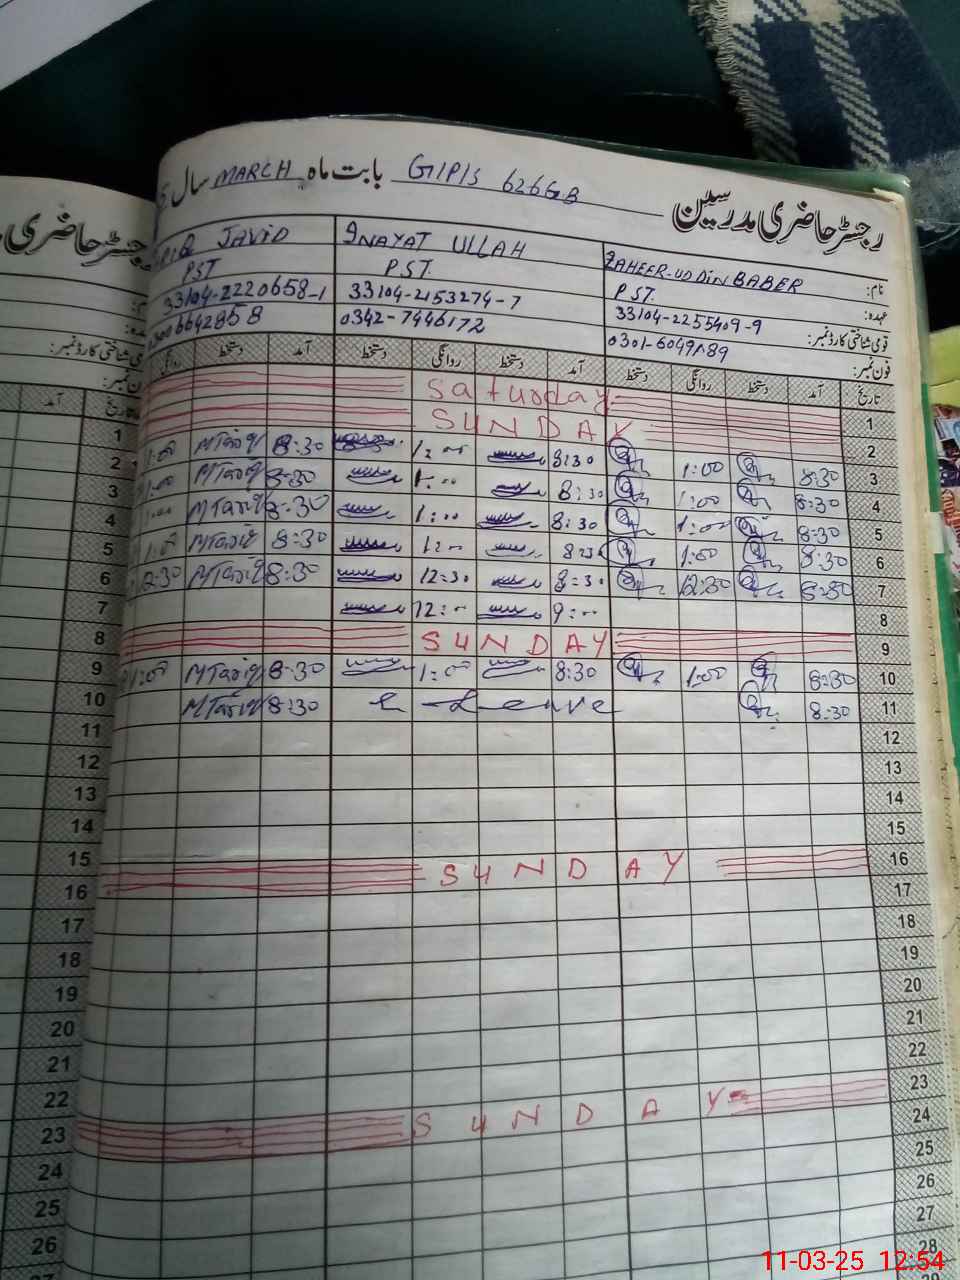 رجسٹر حاضری مدرسین GIPIS 626GB بابت ماہ MARCH سال
نام: ZAHEER-UD DIN BABER
INAYAT ULLAH
JAVID
عہدہ: PST.
PST.
PST
قومی شناختی کارڈ نمبر: 33104-2255409-9
33104-2153274-7
33104-2220658-1
فون نمبر:
0342-7446172
تاریخ آمد دستخط روانگی دستخط آمد دستخط روانگی دستخط آمد دستخط روانگی
1 Saturday
2 SUNDAY
3 8:30 1:00 8:30 1:00 8:30 MTariq 1:00
4 8:30 1:00 8:30 1:00 8:30 MTariq 1:00
5 8:30 1:00 8:30 1:00 8:30 MTariq 1:00
6 8:30 1:00 8:30 1:00 8:30 MTariq 1:00
7 8:30 12:30 8:30 12:30 8:30 MTariq 12:30
8 9:00 12:00
9 SUNDAY
10 8:30 1:00 8:30 1:00 8:30 MTariq 1:00
11 8:30 Leave 8:30 MTariq
12
13
14
15
16 SUNDAY
17
18
19
20
21
22
23 SUNDAY
24
25
26
27
28
رجسٹر حاضری
آمد
1
2
3
4
5
6
7
8
9
10
11
12
13
14
15
16
17
18
19
20
21
22
23
24
25
26
11-03-25 12:54